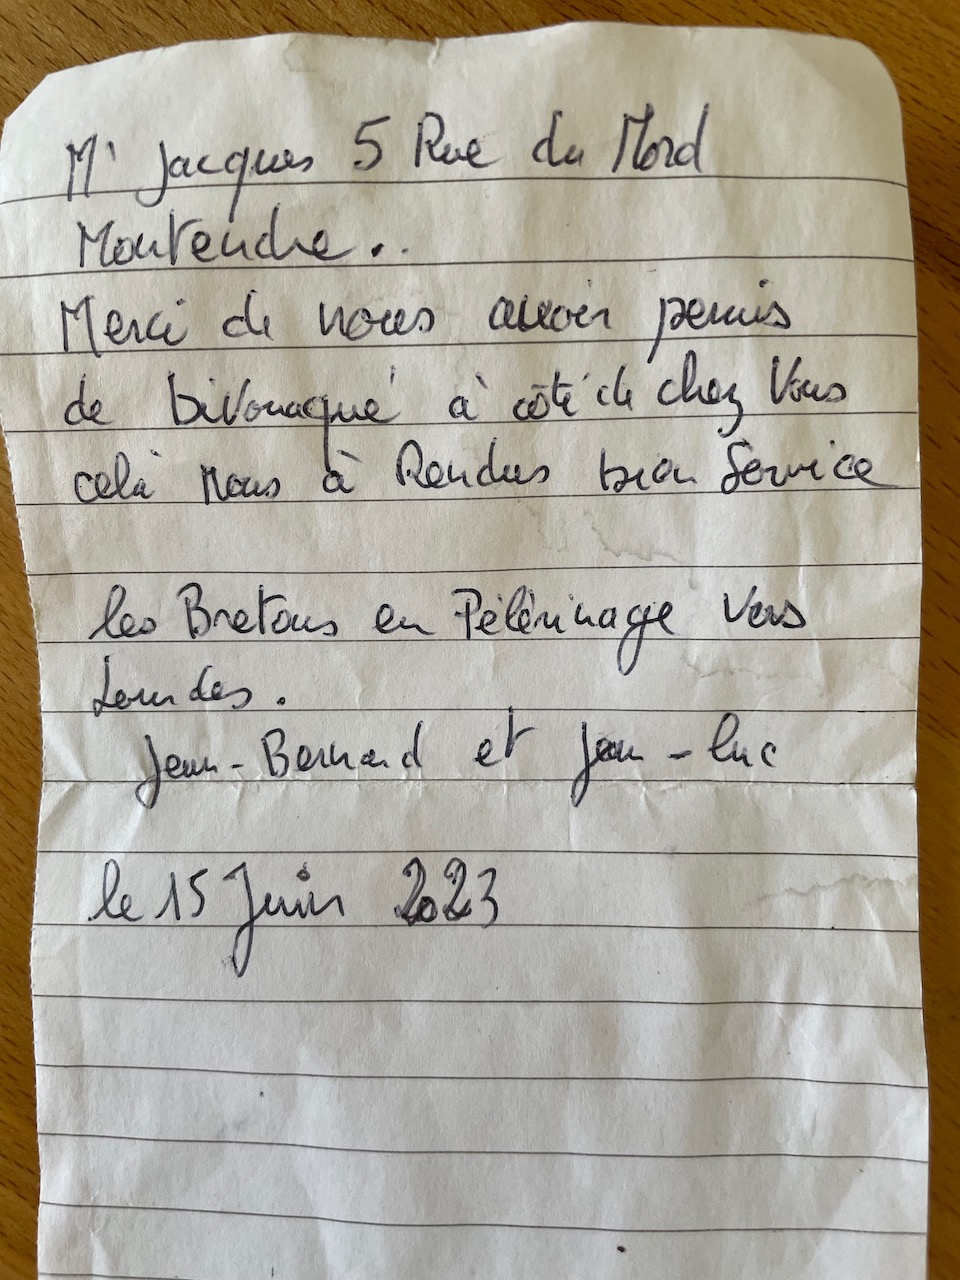 Mr Jacques 5 Rue du Nord
Montendre..
Merci de nous avoir permis
de bivouaqué à côté de chez Vous
celà nous à Rendus bien Service
les Bretons en Pélérinage Vers
Lourdes.
Jean-Bernard et Jean-luc
le 15 Juin 2023